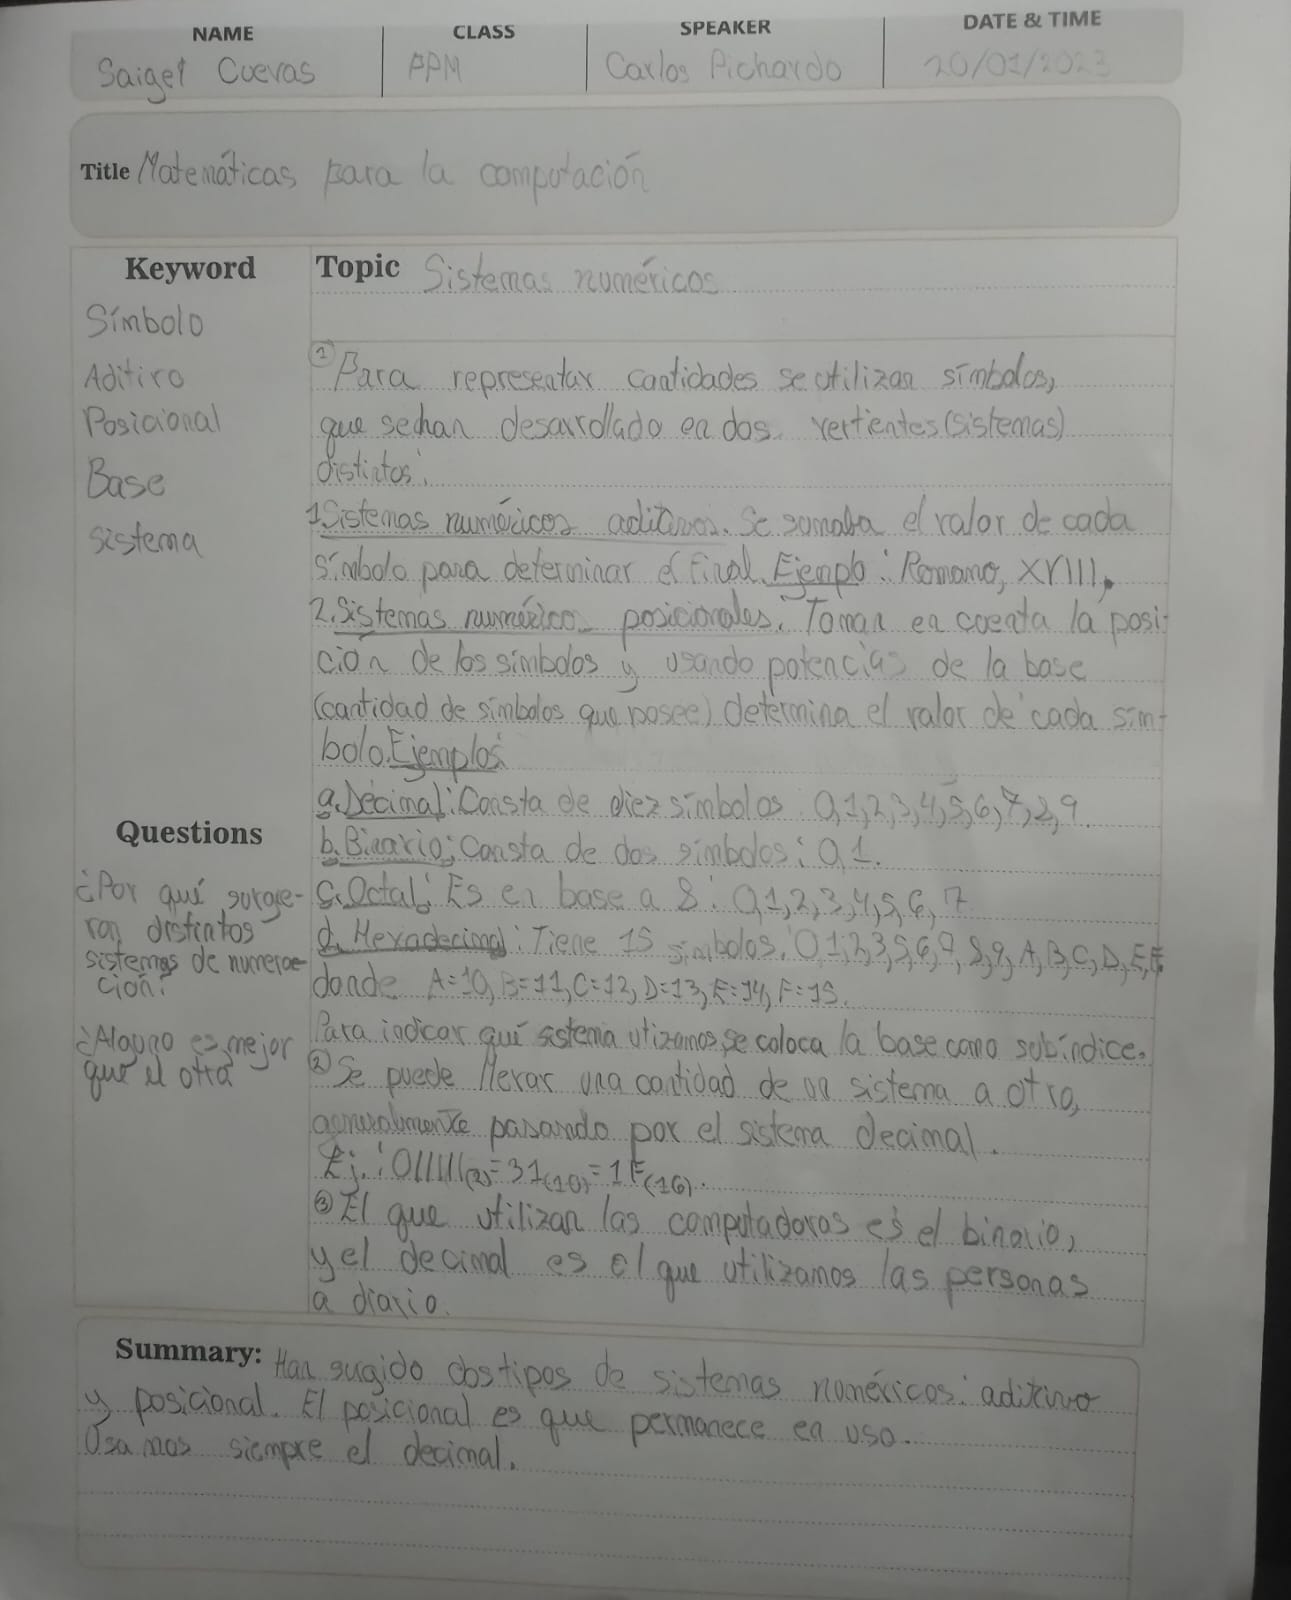 NAME CLASS SPEAKER DATE & TIME
Saiget Cuevas PPM Carlos Pichardo 20/01/2023
Title Matemáticas para la computación
Keyword
Símbolo
Aditivo
Posicional
Base
sistema
Questions
¿Por qué surgie-
ron distintos
sistemas de numera-
ción?
¿Alguno es mejor
que el otro
Topic Sistemas numéricos
① Para representar cantidades se utilizan símbolos,
que se han desarrollado en dos vertientes (sistemas)
distintos:
1. Sistemas numéricos aditivos. Se sumaba el valor de cada
símbolo para determinar el final. Ejemplo: Romano, XVIII.
2. Sistemas numéricos posicionales. Toman en cuenta la posi-
ción de los símbolos y usando potencias de la base
(cantidad de símbolos que posee) determina el valor de cada sím-
bolo. Ejemplos:
a. Decimal: Consta de diez símbolos: 0,1,2,3,4,5,6,7,2,9.
b. Binario: Consta de dos símbolos: 0,1.
c. Octal: Es en base a 8: 0,1,2,3,4,5,6,7
d. Hexadecimal: Tiene 15 símbolos. 0,1,2,3,5,6,7,8,9,A,B,C,D,E,F,
donde A=10, B=11, C=12, D=13, E=14, F=15.
Para indicar qué sistema utizamos se coloca la base como subíndice.
② Se puede llevar una cantidad de un sistema a otro,
generalmente pasando por el sistema decimal.
Ej.: 011111(2)=31(10)=1F(16).
③ El que utilizan las computadoras es el binario,
y el decimal es el que utilizamos las personas
a diario.
Summary: Han sugido dos tipos de sistemas numéricos: aditivo
y posicional. El posicional es que permanece en uso.
Usamos siempre el decimal.